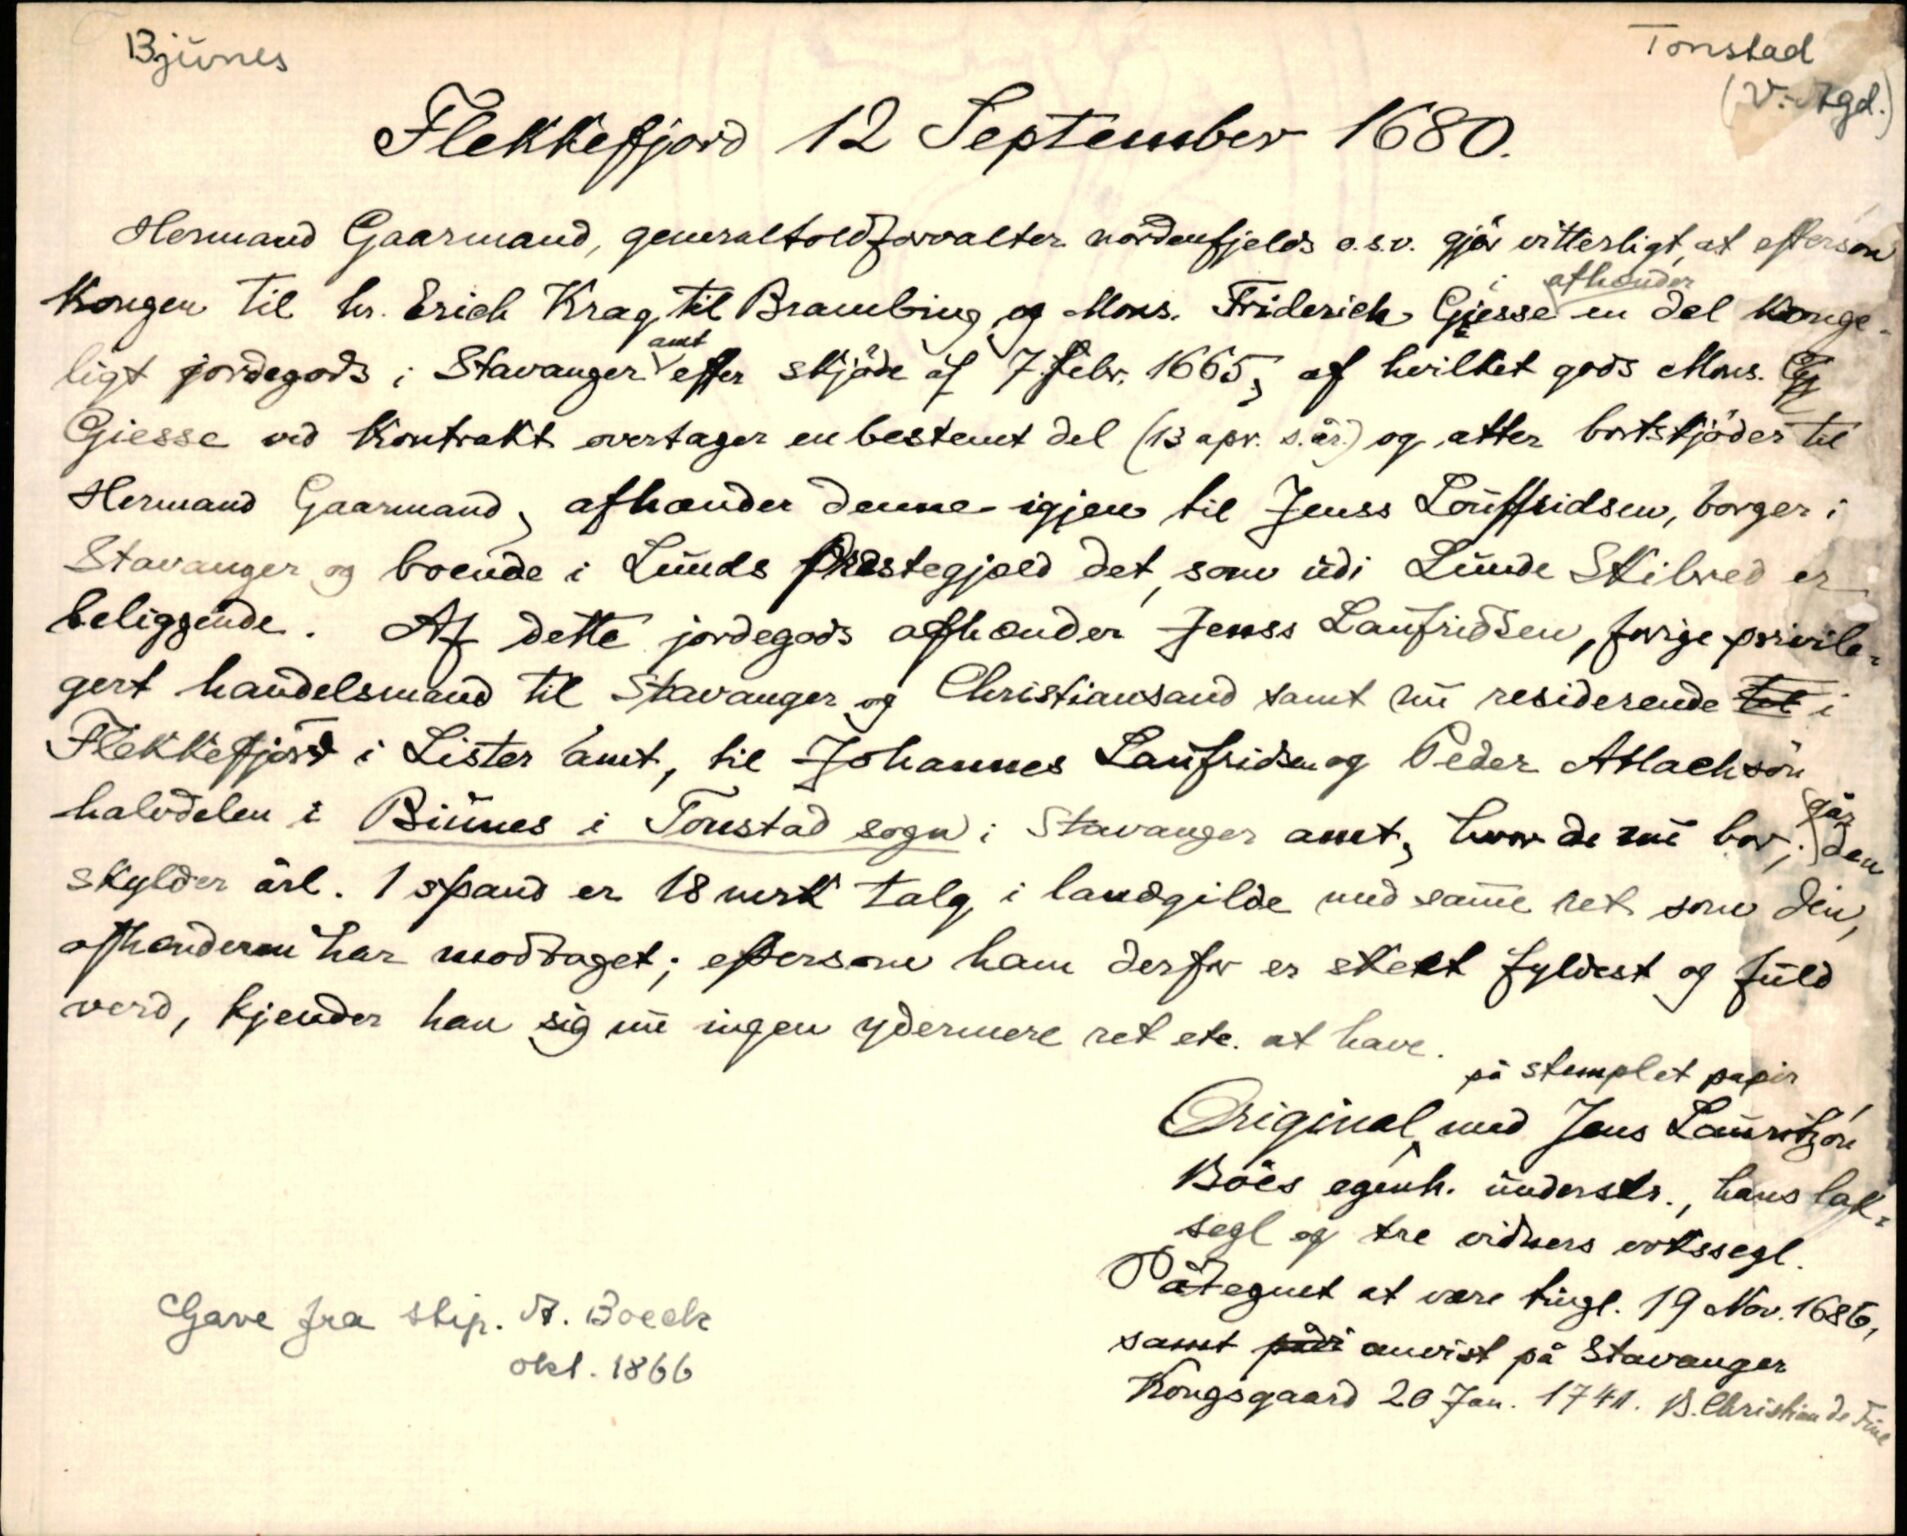 Bjünes
Tonstad
(V.-Agd.)
Flekkefjord 12 September 1680.
Hermand Gaarmand, generaltoldforvalter nordenfjelds o.s.v. gjör vitterligt, at eftersom
Kongen til hr. Erich Krag til Brambing og Mons. Friderich Giesse afhænder en del konge-
ligt jordegods i Stavanger amt efter skjöde af 7 febr. 1665, af hvilket gods Mons.
Giesse ved Kontrakt overtager en bestemt del (13 apr. s. år.) og atter bortskjöder til
Hermand Gaarmand, afhænder denne igjen til Jenss Louffridsen, borger i
Stavanger og boende i Lunds præstegjæld det, som üdi Lunde Skibred er
beliggende. Af dette jordegods afhænder Jenss Laufridsen, forige privile-
gert handelsmand til Stavanger og Christiansand samt nü residerende til i
Flekkefjord i Lister amt, til Johannes Laufridsen og Peder Atlachsön
halvdelen i Biünes i Tonstad sogn i Stavanger amt, hvor de nü bor; går den
skylder årl. 1 spand er 18 mrk talg i landgilde med samme ret som den,
afhænderen har modtaget; eftersom ham derfor er skeet fyldest og füld
verd, kjender han sig nü ingen ydermere ret etc. at have.
på stemplet papir
Original med Jens Lauritzön
Böes egenh. ünderskr., hans lak-
segl og tre vidners vokssegl.
Påtegnet at være tingl. 19 Nov. 1686,
samt anvist på Stavanger
Kongsgaard 20 Jan. 1741. B. Christian de Fine
Gave fra stip. A. Boeck
okt. 1866